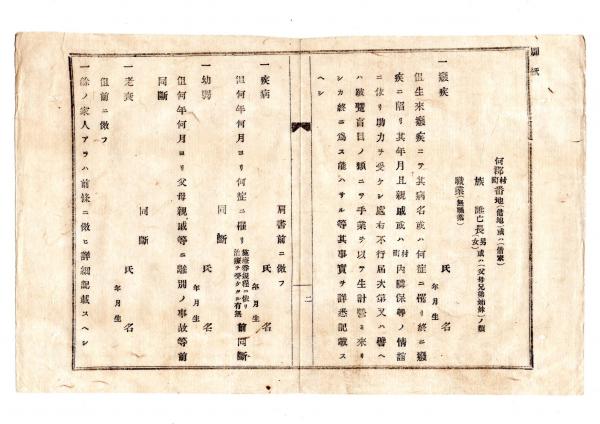 別紙
何郡町村番地(借地)或ハ(借家)
族 誰亡長男女或ハ(父母兄弟姉妹)ノ類
職業(無職業)
氏名
年月生
一癈疾
但生来癈疾ニテ其病名或ハ何症ニ罹リ終ニ癈
疾ニ陥リ其年月且親戚或ハ町村内隣保等ノ情誼
ニ依リ助力ヲ受ケシ處右不行届次第又ハ譬ヘ
ハ聾盲目ノ類ニテ手業ヲ以テ生計營ミ来リ
シカ終ニ為ス能ハサル等其事實ヲ詳悉記載ス
ヘシ
二
肩書前ニ倣フ
氏名
年月生
一疾病
但何年何月ヨリ何症ニ罹リ施療券規程ニ依リ治療ヲ受クル有無前同断
同断
氏名
年月生
一幼弱
但何年何月ヨリ父母親戚等ニ離別ノ事故等前
同断
同断
氏名
年月生
一老衰
但前ニ倣フ
一餘ノ家人アラハ前條ニ倣ヒ詳細記載スヘシ